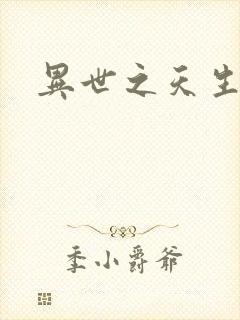 異世之天生
季小爵爷